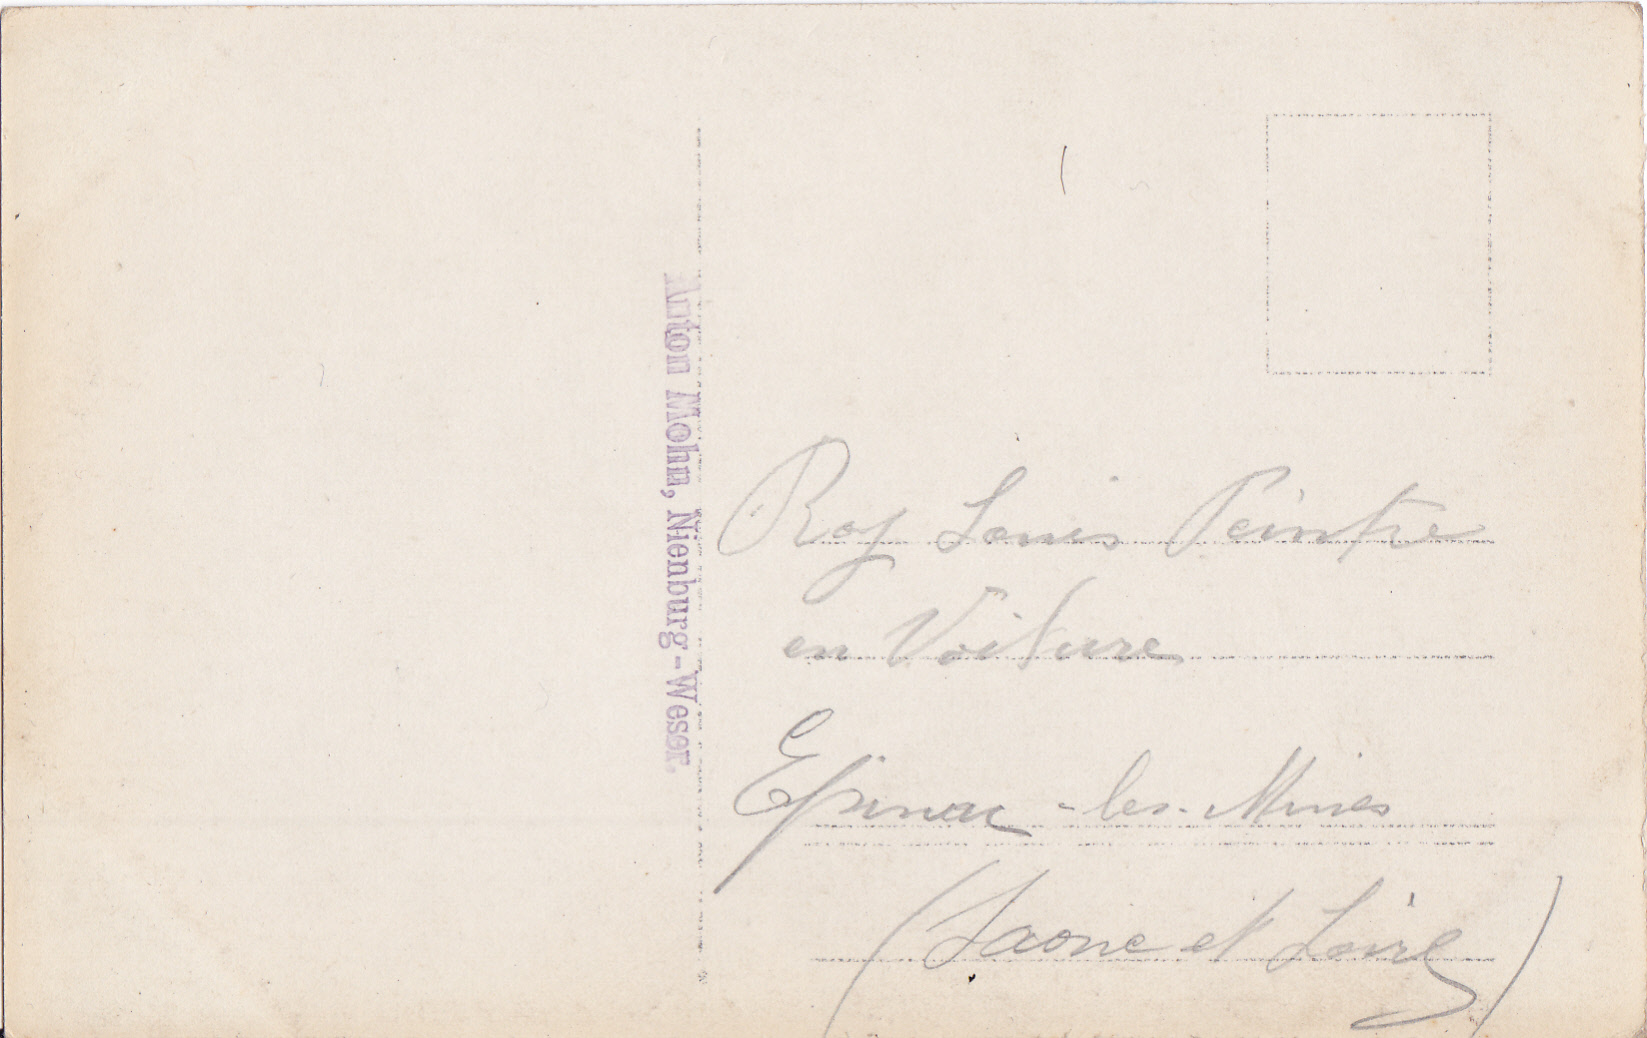 Anton Mohn, Nienburg-Weser.
Roy Louis Peintre
en Voiture
Epinac-les-Mines
(Saone et Loire)